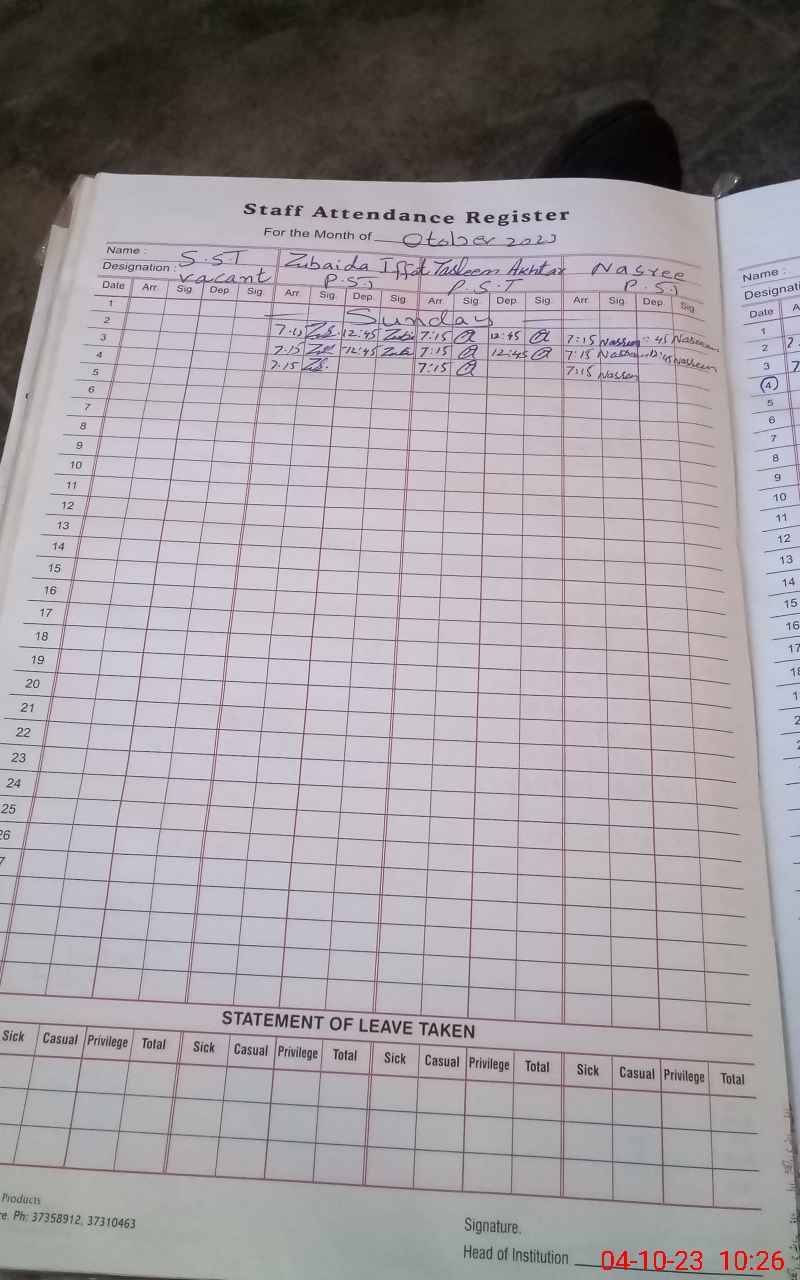 Staff Attendance Register
For the Month of Otober 2023
Name : S.S.T Zubaida Iffat Tasleem Akhtar Nasree
Designation : vacant P.S.T P.S.T P.S.T
Date Arr. Sig. Dep. Sig. Arr. Sig. Dep. Sig. Arr. Sig. Dep. Sig. Arr. Sig. Dep. Sig.
1 Sunday
2 7.15 12:45 7:15 12:45 7:15 Nasreen :45 Nasreen
3 7.15 12:45 7:15 12:45 7:15 Nasreen 12:45 Nasreen
4 7.15 7:15 7:15 Nasreen
5
6
7
8
9
10
11
12
13
14
15
16
17
18
19
20
21
22
23
24
25
26
7
STATEMENT OF LEAVE TAKEN
Sick Casual Privilege Total Sick Casual Privilege Total Sick Casual Privilege Total Sick Casual Privilege Total
Products
re. Ph: 37358912, 37310463
Signature.
Head of Institution
Name :
Designati
Date A
1
2 7.
3 7
4
5
6
7
8
9
10
11
12
13
14
15
16
17
04-10-23 10:26